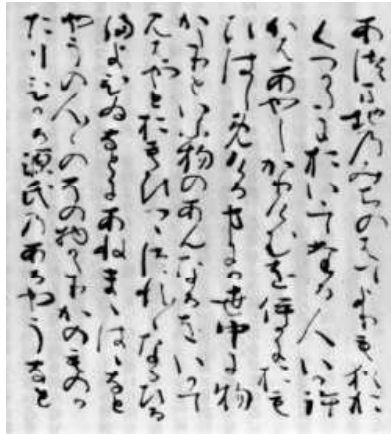 あつま地のみちのはてよりも猶お
くつかたにおいいてたる人いか許
かはあやしかりけむをいかにおも
ひはしめける事にか世中に物
かたりといふ物のあんなるをいかて
見はやとおもひつゝつれ〱なるひる
まよひゐなとにあねまゝはゝなと
やうの人〱のその物かたりかのものか
たりひかる源氏のあるやうなと